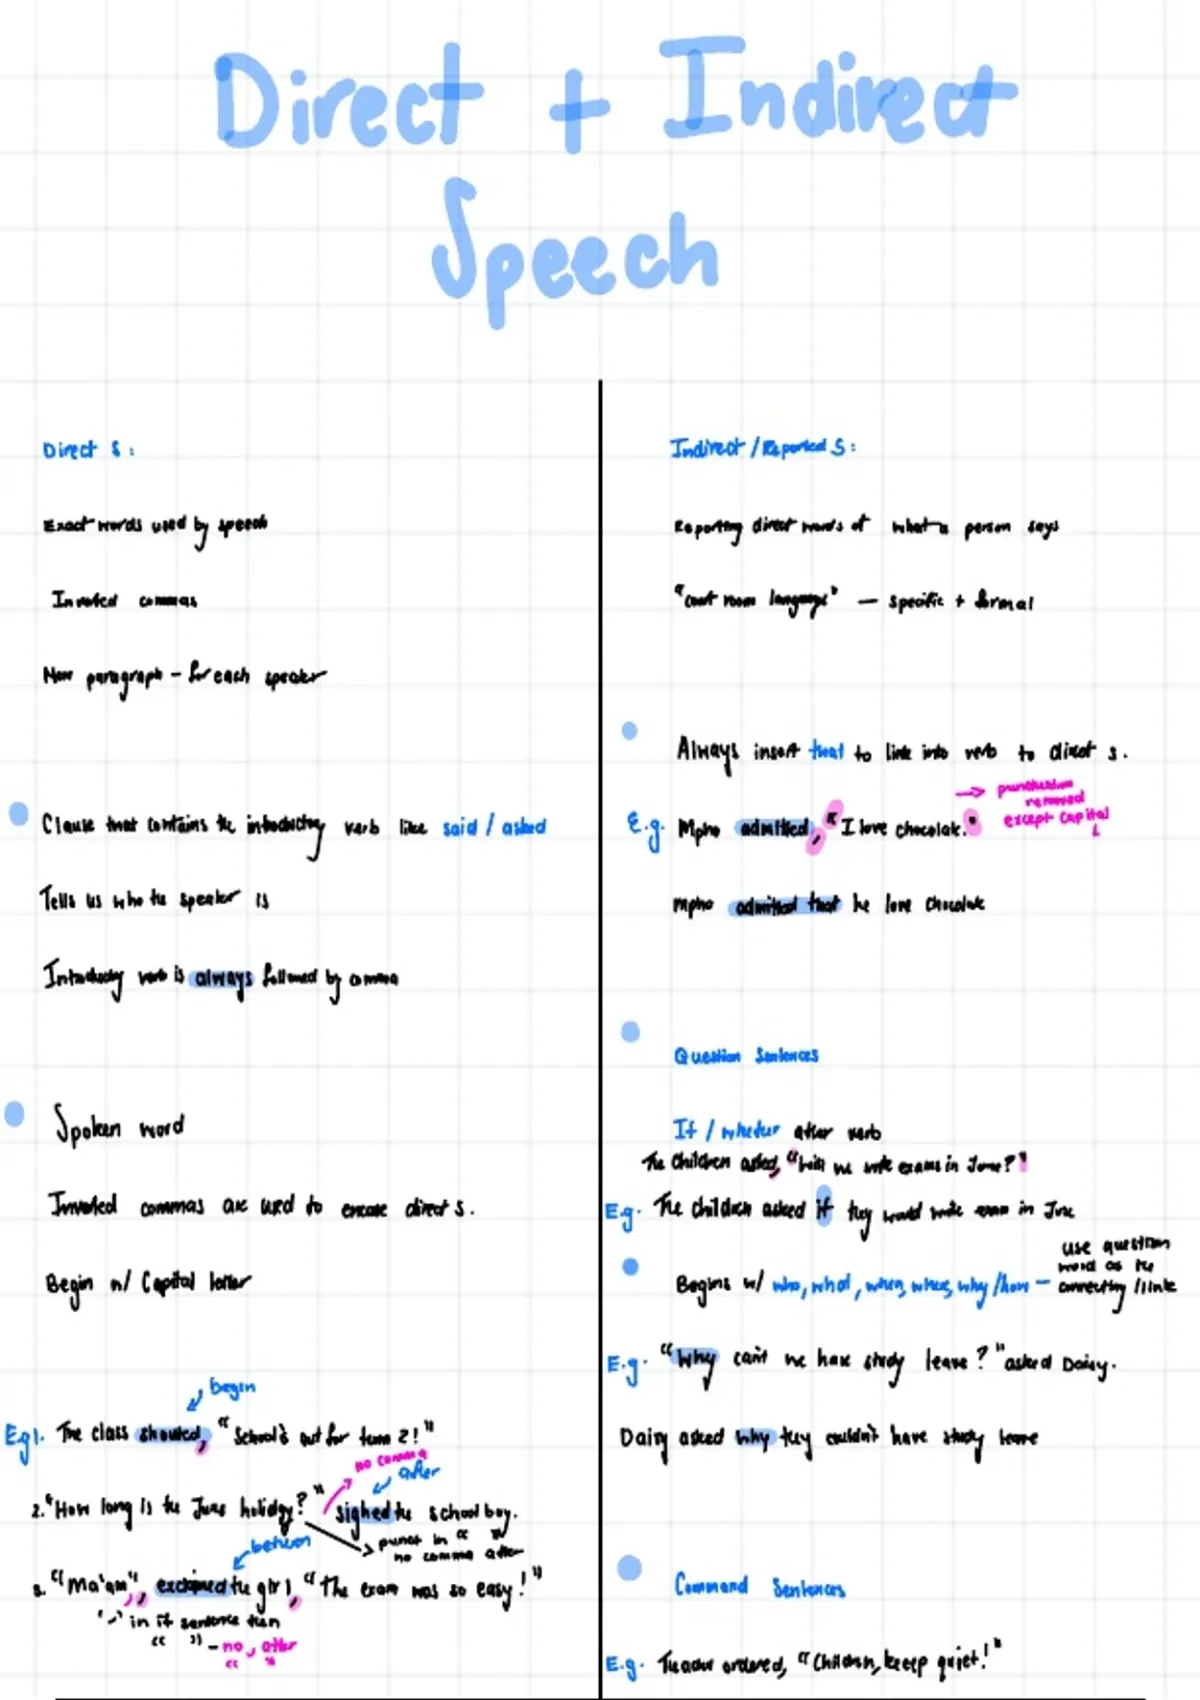 Direct + Indirect
Speech
Direct S:
Exact words used by speech
Inverted commas
New paragraph - for each speaker
Clause that contains the introductory verb like said / asked
Tells us who the speaker is
Introductory verb is always followed by comma
Spoken word
Inverted commas are used to encase direct s.
Begin w/ Capital letter
begin
E.g1. The class shouted, "School's out for term 2!"
no comma
after
2. "How long is the June holiday?" sighed the school boy.
punct in " "
no comma after
between
3. "Ma'am", exclaimed the girl, "The exam was so easy!"
in it sentence then
" " - no , after
" "
Indirect / Reported S:
Reporting direct words of what a person says
"court room language" — specific + formal
Always insert that to link into verb to direct s.
→ punctuation
removed
except capital
L
E.g. Mpho admitted, "I love chocolate."
Mpho admitted that he love chocolate
Question Sentences
If / whether after verb
The children asked, "Will we write exams in June?"
E.g. The children asked if they would write exam in June
use question
word as the
connecting / link
Begins w/ who, what, when, where, why / how —
E.g. "Why can't we have study leave?" asked Daisy.
Daisy asked why they couldn't have study leave
Command Sentences
E.g. Teacher ordered, "Children, keep quiet!"